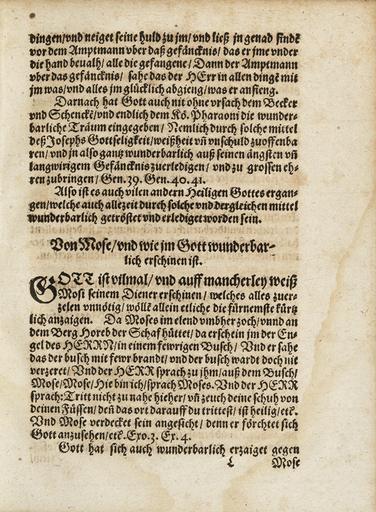 dingen/vnd neiget seine huld zu jm/vnd ließ jn genad findē
vor dem Amptmann vber daß gefäncknis/das er jme vnder
die hand beualh/alle die gefangene/Dann der Amptmann
vber das gefäncknis/ sahe das der HErr in allen dingē mit
jm was/vnd alles jm glücklich abgieng/was er anfieng.
Darnach hat Gott auch nit ohne vrsach dem Becker
vnd Schenckē/vnd endlich dem Kö. Pharaoni die wunder-
barliche Träum eingegeben/Nemlich durch solche mittel
deß Josephs Gottseligkeit/weißheit vñ vnschuld zuoffenba
ren/vnd jn also gantz wunderbarlich auß seinen ängsten vñ
langwirigen Gefäncknis zuerledigen/vnd zu grossen eh-
ren zubringen/Gen.39.Gen.40.41.
Also ist es auch vilen andern Heiligen Gottes ergan-
gen/welche auch allezeit durch solche vnd dergleichen mittel
wunderbarlich getröstet vnd erlediget worden sein.
Von Mose/vnd wie jm Gott wunderbar-
lich erschinen ist.
GOTT ist vilmal/vnd auff mancherley weiß
Mosi seinem Diener erschinen/ welches alles zuer-
zelen vnnötig/wölle allein etliche die fürnemste kürtz
lich anzeigen. Da Moses im elend vmbher zoch/vnnd an
dem Berg Horeb der Schaf hüttet/da erschein jm der En-
gel des HERRN/in einem fewrigen Busch/ Vnd er sahe
das der busch mit fewr brandt/vnd der busch wardt doch nit
verzeret/Vnd der HERR sprach zu jhm/auß dem Busch/
Mose/Mose/Hie bin ich/sprach Moses. Vnd der HERR
sprach: Tritt nicht zu nahe hieher/vñ zeuch deine schuh von
deinen Füssen/deñ das ort darauff du trittest/ist heilig/etc.
Vnd Mose verdecket sein angesicht/denn er förchtet sich
Gott anzusehen/etc. Exo.3. Ex.4.
Gott hat sich auch wunderbarlich erzaiget gegen
L Mose